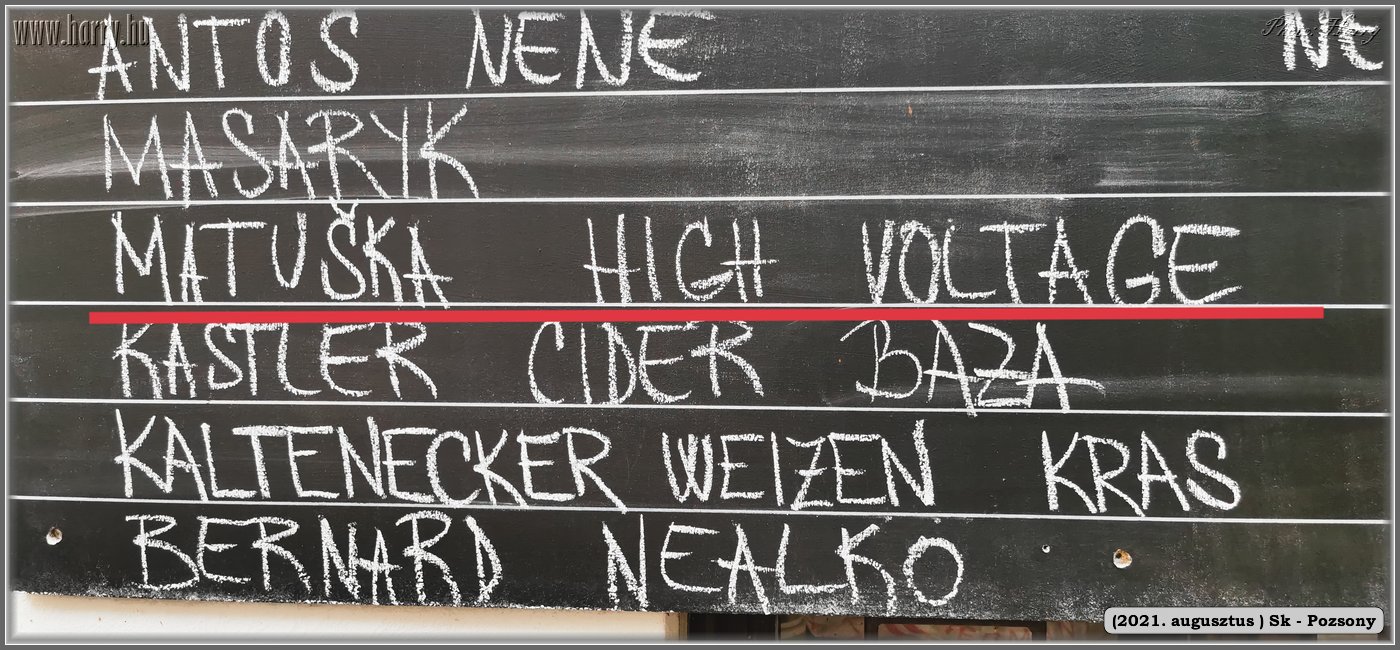 www.harry.hu
Photo: Harry
ANTOS NENE NE
MASARYK
MATUŠKA HIGH VOLTAGE
KASTLER CIDER BAZA
KALTENECKER WEIZEN KRAS
BERNARD NEALKO
(2021. augusztus ) Sk - Pozsony